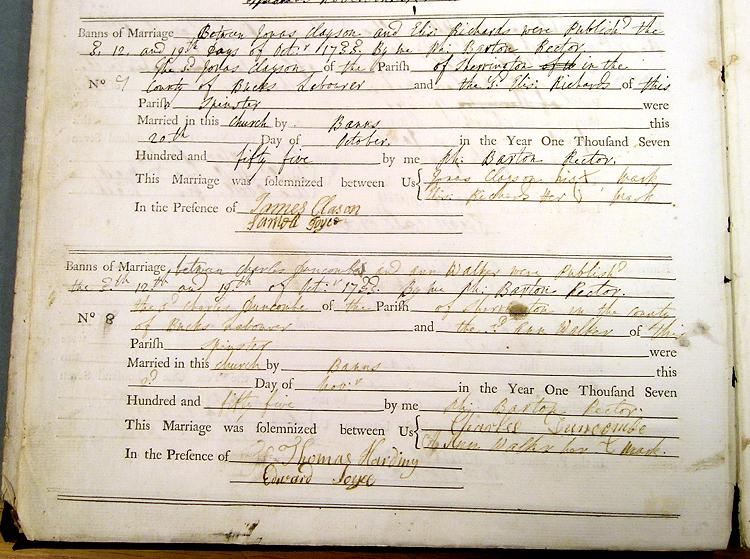 Banns of Marriage Between Jonas Clayson and Eliz: Richards were Publish.d the
5, 12, and 19th Days of Oct.r 1755 By me Phi: Barton Rector
The s.d Jonas Clayson of the Parish of Sherrington in the
No 7 County of Bucks Labourer and the s.d Eliz: Richards of this
Parish Spinster were
Married in this Church by Banns this
20th Day of October in the Year One Thousand Seven
Hundred and fifty five by me Phi: Barton Rector.
This Marriage was solemnized between Us Jonas Clayson his X mark
Eliz: Richards Her mark
In the Presence of James Clason
Samuel Joyce
Banns of Marriage between Charles Duncombe and Ann Walker were Publish.d
the 5th 12th and 19th of Oct.r 1755. By me Phi: Barton Rector.
the s.d Charles Duncombe of the Parish of Sherrington in the County
No 8 of Bucks Labourer and the s.d Ann Walker of This
Parish Spinster were
Married in this Church by Banns this
2d Day of Nov.r in the Year One Thousand Seven
Hundred and fifty five by me Phi: Barton Rector.
This Marriage was solemnized between Us Charles Duncombe
Ann Walker her X mark.
In the Presence of Thomas Harding
Edward Joyce